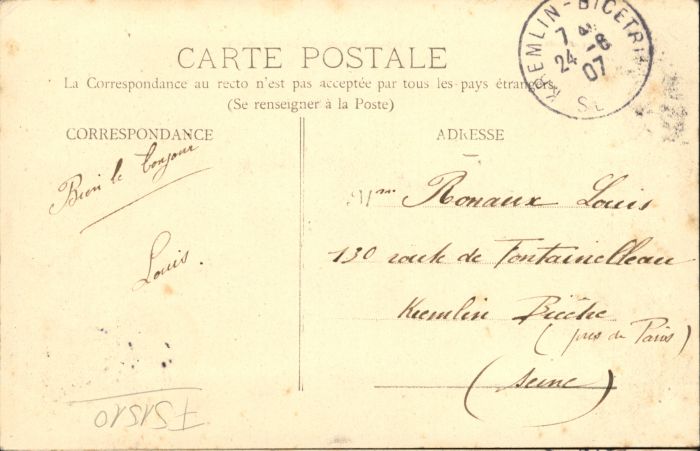 KREMLIN-BICETRE
7 24 -8 07
CARTE POSTALE
La Correspondance au recto n'est pas acceptée par tous les pays étrangers
(Se renseigner à la Poste)
CORRESPONDANCE
Bien le bonjour
Louis.
ADRESSE
Mme Ronaux Louis
130 route de Fontainelleau
Kremlin Bicêtre
(près de Paris)
(Seine)